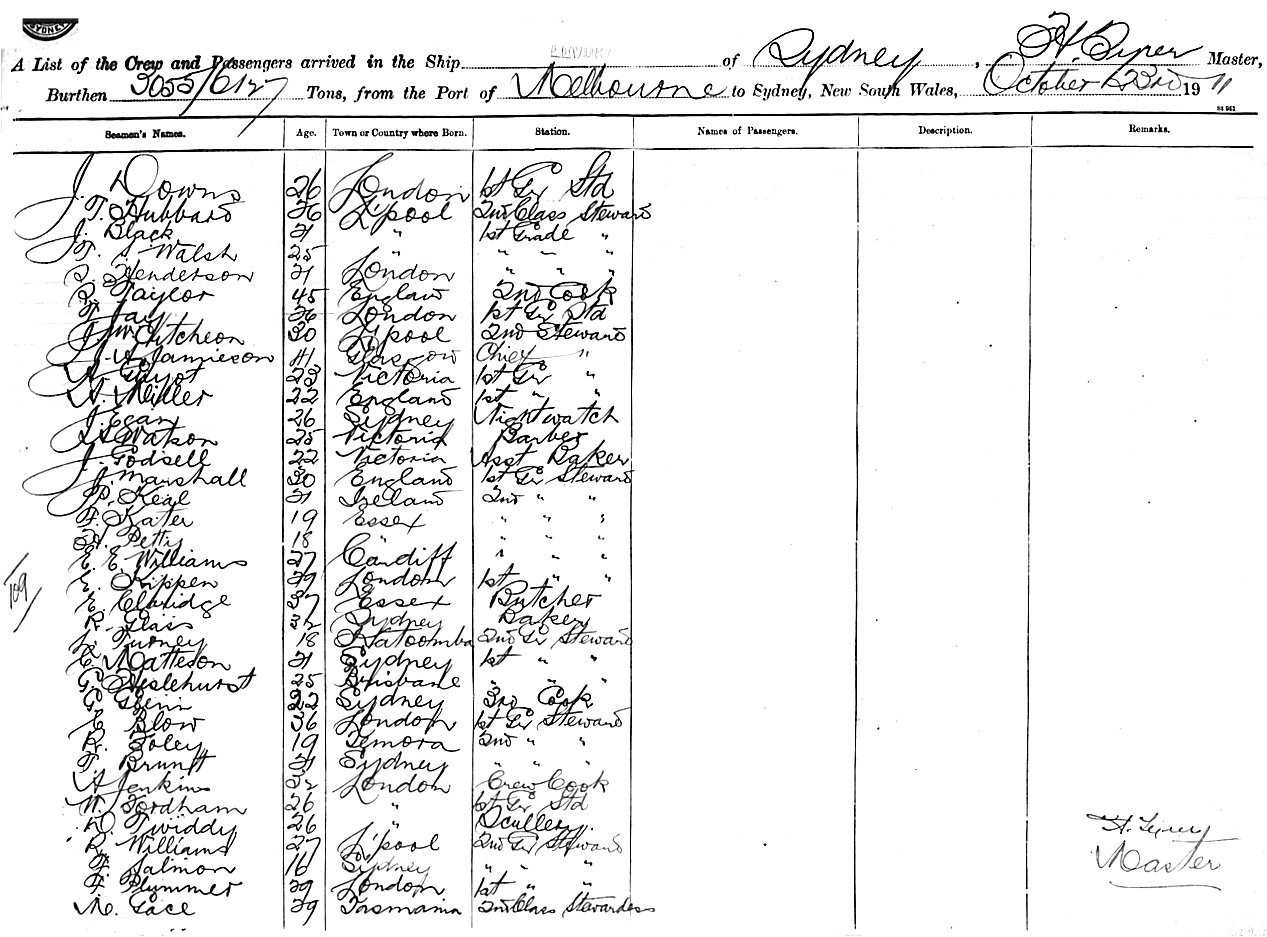 SYDNEY
A List of the Crew and Passengers arrived in the Ship of Sydney, Master,
Burthen 3055/6127 Tons, from the Port of Melbourne to Sydney, New South Wales, October 23rd 1911
84 961
Seamen's Names. Age. Town or Country where Born. Station. Names of Passengers. Description. Remarks.
J. Downs 26 London 1st Gr Std
T. Hubbard 26 L'pool 2nd Class Steward
J. Black 21 " 1st Grade "
Walsh 25 " " " "
Henderson 21 London " " "
Taylor 45 England 2nd Cook
Jay 26 London 1st Gr Std
McCutcheon 30 L'pool 2nd Steward
Jamieson 41 Glasgow Chief "
Guyot 23 Victoria 1st Gr "
Miller 22 England 1st " "
J. Egan 26 Sydney Nightwatch
Watson 25 Victoria Barber
J. Godsell 22 Victoria Asst Baker
J. Marshall 30 England 1st Gr Steward
P. Keal 21 Ireland 2nd " "
F. Kater 19 Essex " " "
H. Petty 18 " " " "
E. E. Williams 27 Cardiff " " "
Kippen 29 London 1st " "
E. Elbridge 37 Essex Butcher
R. Glass 32 Sydney Baker
Turney 18 Katoomba 2nd Gr Steward
C. Matteson 21 Sydney 1st " "
G. 25 Brisbane " " "
G. Glenn 22 Sydney 3rd Cook
C. Blow 36 London 1st Gr Steward
R. Foley 19 Temora 2nd " "
F. Brunt 21 Sydney " " "
A. Jenkins 32 London Crew Cook
W. Fordham 26 " 1st Gr Std
D. Twiddy 26 " Scullery
R. Williams 27 L'pool 2nd Gr Steward
F. Salmon 16 Sydney " " "
F. Plummer 29 London 1st " "
M. Gace 29 Tasmania 2nd Class Stewardess
109
Master